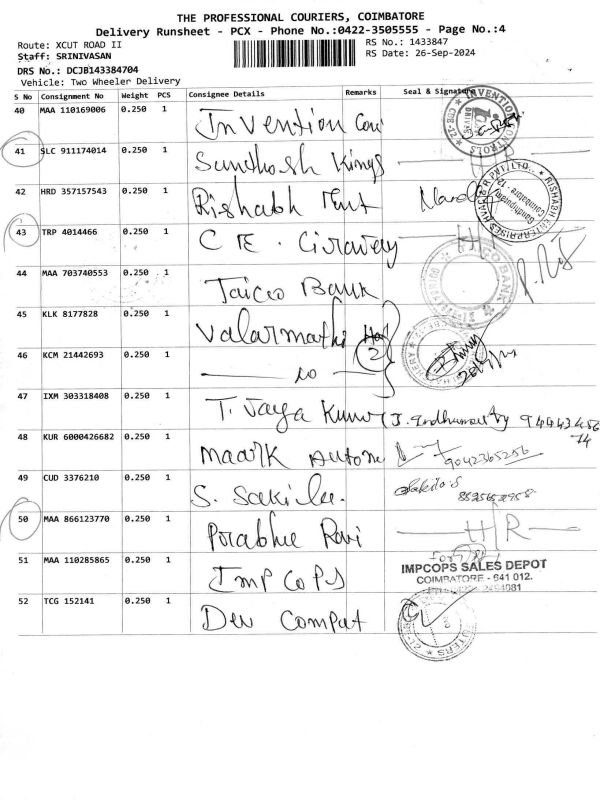 THE PROFESSIONAL COURIERS, COIMBATORE
Delivery Runsheet - PCX - Phone No.:0422-3505555 - Page No.:4
Route: XCUT ROAD II
RS No.: 1433847
Staff: SRINIVASAN
RS Date: 26-Sep-2024
DRS No.: DCJB143384704
Vehicle: Two Wheeler Delivery
S No Consignment No Weight PCS Consignee Details Remarks Seal & Signature
40 MAA 110169006 0.250 1 Invention INVENTION CONTROLS
41 SLC 911174014 0.250 1 Santhosh Kings H/R
42 HRD 357157543 0.250 1 Rishabh Ent RISHABH ENTERPRISES
43 TRP 4014466 0.250 1 C E . H/R
44 MAA 703740553 0.250 1 Taico Bank CO BANK
45 KLK 8177828 0.250 1 Valarmathi 2
46 KCM 21442693 0.250 1
47 IXM 303318408 0.250 1 T. Jaya Kumar
48 KUR 6000426682 0.250 1 Maark 9042365256
49 CUD 3376210 0.250 1 S. Sakila.
50 MAA 866123770 0.250 1 Prabhu Ravi H/R
51 MAA 110285865 0.250 1 Imp Cops IMPCOPS SALES DEPOT
COIMBATORE - 641 012.
52 TCG 152141 0.250 1 Dev Comput